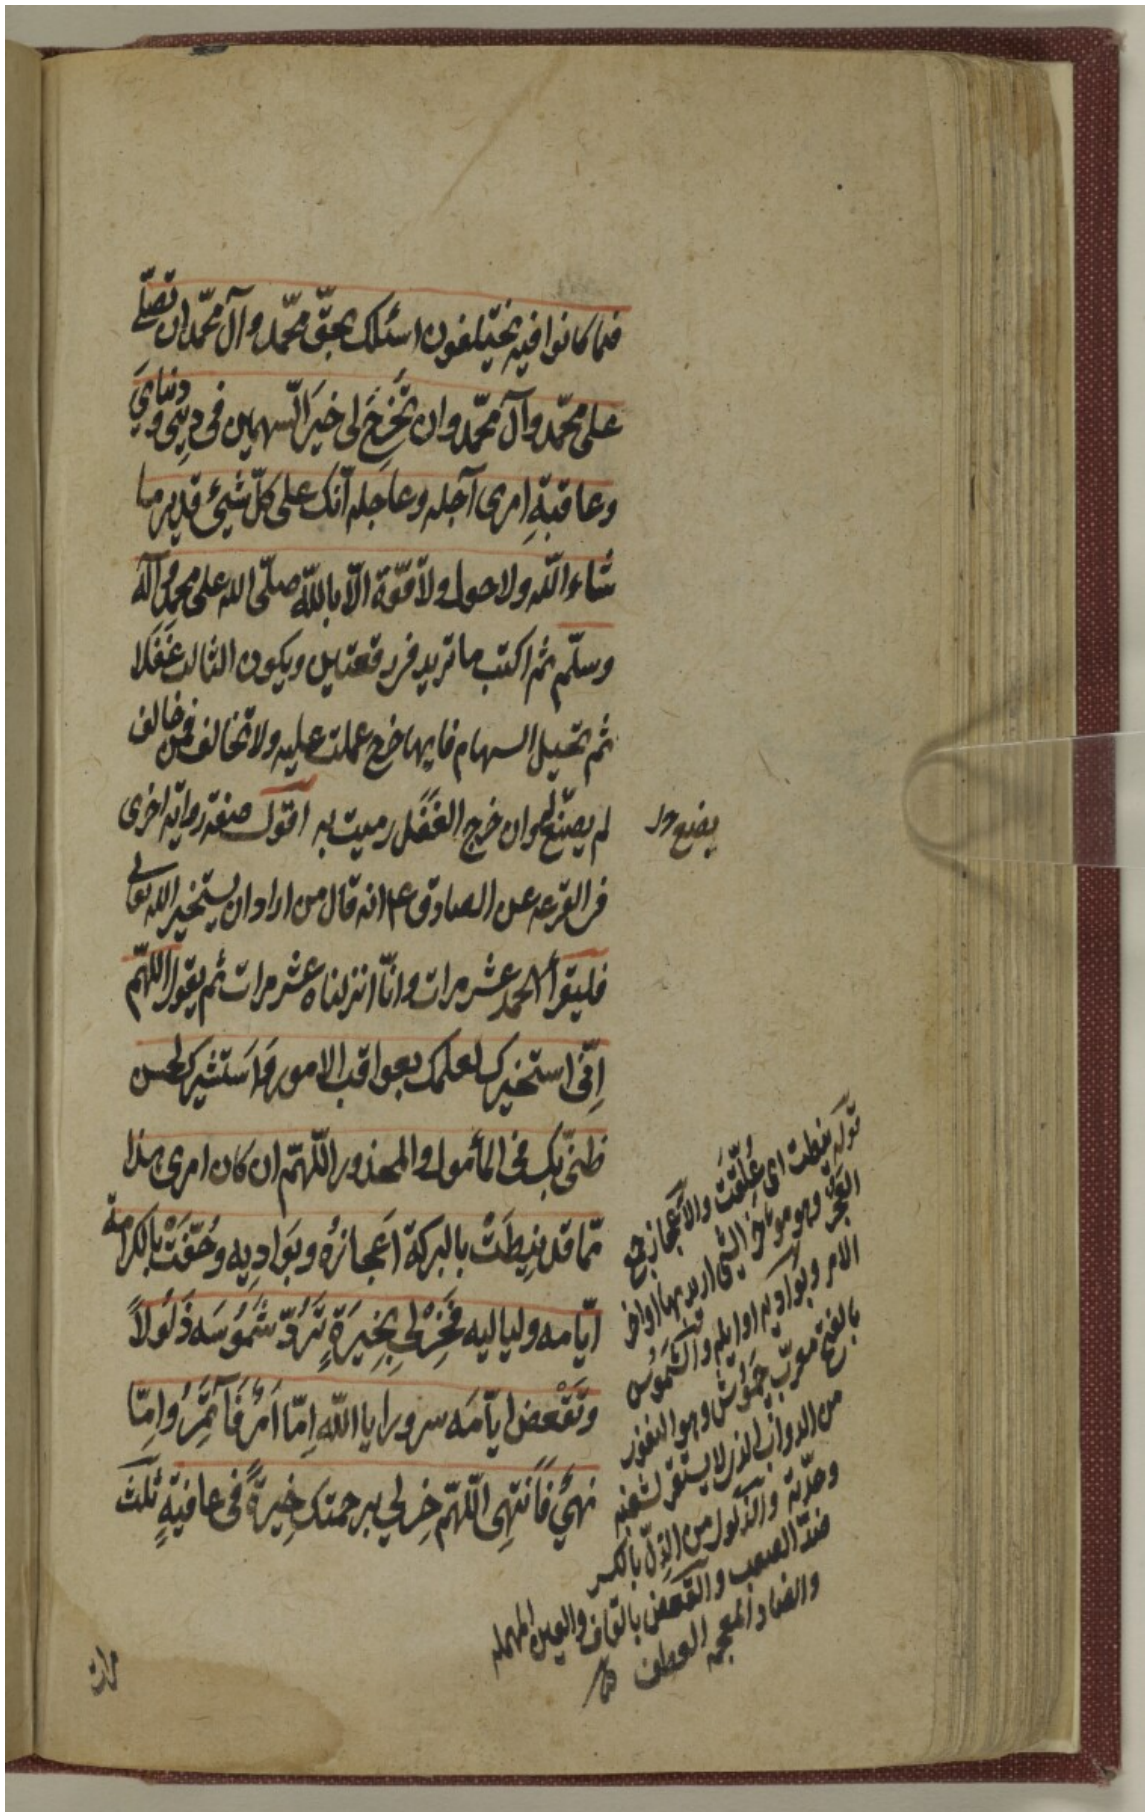 فيما كانوا فيه يختلفون اسئلك بحقّ محمّد وآل محمّد ان تصلّي
على محمّد وآل محمّد وان تُخْرِجَ لى خيرَ السّهمين فى دِينِى ودنيايَ
وعاقبةِ امرى آجله وعاجله انّك على كلّ شيئ قدير ما
شاء اللّه ولا حول ولا قوّة الّا باللّه صلّى الله على محمد وآله
وسلّم ثم اكتب ما تريد فى رقعتين ويكون الثالث غُفْلا
ثم تجيل السهام فايها خرج عملت عليه ولا تخالف فمن خالف
لم يصنع له وان خرج الغُفْل رميت به اقول صفة رواية اخرى
فى القرعه عن الصادق ع انه قال من اراد ان يستخير الله تعالى
فليقرأ الحمد عشر مرات وانّا انزلناه عشر مرات ثم يقول اللهمّ
اِنّى استخيرك لعلمك بعواقب الامور وَاَستشيرك لحسن
ظنّى بك فى المأمول والمحذور اللّهمّ ان كان امرى هذا
ممّا قد نِيطَتْ بالبركة اَعجازُه وبَوَادِيه وحُفّتْ بالكرامة
ايّامه ولياليه فَخِرْلِى بِخِيَرَةٍ تَرُدّ شَمُوسَه ذَلُولاً
وتَقْعَض ايّامَه سرورا يا اللّه اِمّا اَمْرٌ فَآتَمِرُ واِمّا
نهيٌ فَاَنتهِى اللّهمّ خِرلي برحمتك خِيرةً فى عافيةٍ ثلث
يضنع ول
قوله نيطت اى عُلّقَتْ والاَعجاز جمع
العَجُز وهو مؤخر الشئ اريد بها اواخر
الامر وبواديه اوايله والشَّمُوس
بالفتح معرّب چموش وهو النفور
من الدواب الذى لا يستقر لشغبه
وحدّته والذَّلول من الذِلّ بالكسر
ضدّ الصعب والقعض بالقاف والعين المهمله
والضاد المعجمه العطف
مرات